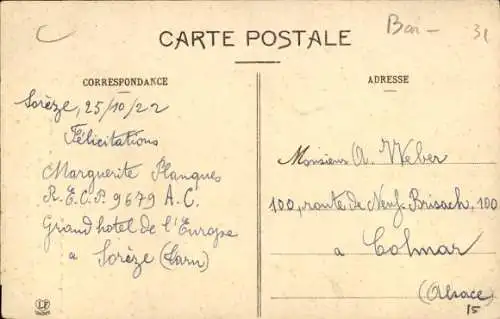 Bar- 31
CARTE POSTALE
CORRESPONDANCE
ADRESSE
Sorèze, 25/10/22
Félicitations
Marguerite Planques
R.E.C.P. 9679 A.C.
Grand hotel de l'Europe
a Sorèze (Tarn)
Monsieur A. Weber
100, route de Neuf-Brisach, 100
a Colmar
(Alsace)
15
LF